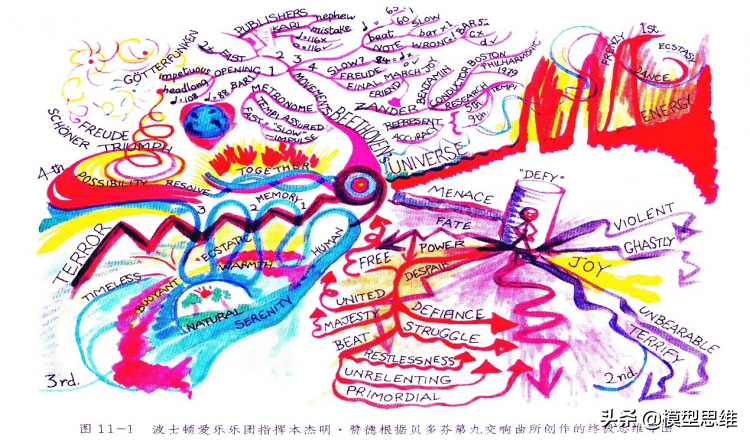 PUBLISHERS
KARL
nephew
mistake
SLOW
beat
bar
NOTE WRONG!
BARS
GÖTTERFUNKEN
FAST
impetuous
headlong
OPENING
BARS
1
2
3
4
METRONOME
TEMPI ASSURED
FAST
"SLOW"
IMPULSE
SLOW?
FREUDE
FINAL MARCH JOY
FRIEND
BEETHOVEN
ZANDER
BENJAMIN
CONDUCTOR BOSTON
PHILHARMONIC
1979
RESEARCH
TEMPI
5th
9th
REPRESENT
ACCURACY
FRENZY
1st
ECSTASY
DANCE
ENERGY
UNIVERSE
FREUDE
SCHÖNER
TRIUMPH
4th
POSSIBILITY
RESOLVE
TOGETHER
3
2
1
MEMORY
TERROR
ECSTATIC
WARMTH
HUMAN
TIMELESS
BUOYANT
NATURAL
SERENITY
3rd.
"DEFY"
MENACE
FATE
POWER
FREE
DESPAIR
UNITED
MAJESTY
BEAT
DEFIANCE
STRUGGLE
RESTLESSNESS
UNRELENTING
PRIMORDIAL
VIOLENT
GHASTLY
JOY
UNBEARABLE
TERRIFY
2nd.
图 11-1 波士顿爱乐乐团指挥本杰明·赞德根据贝多芬第九交响曲所创作的终极思维导图
头条 @模型思维